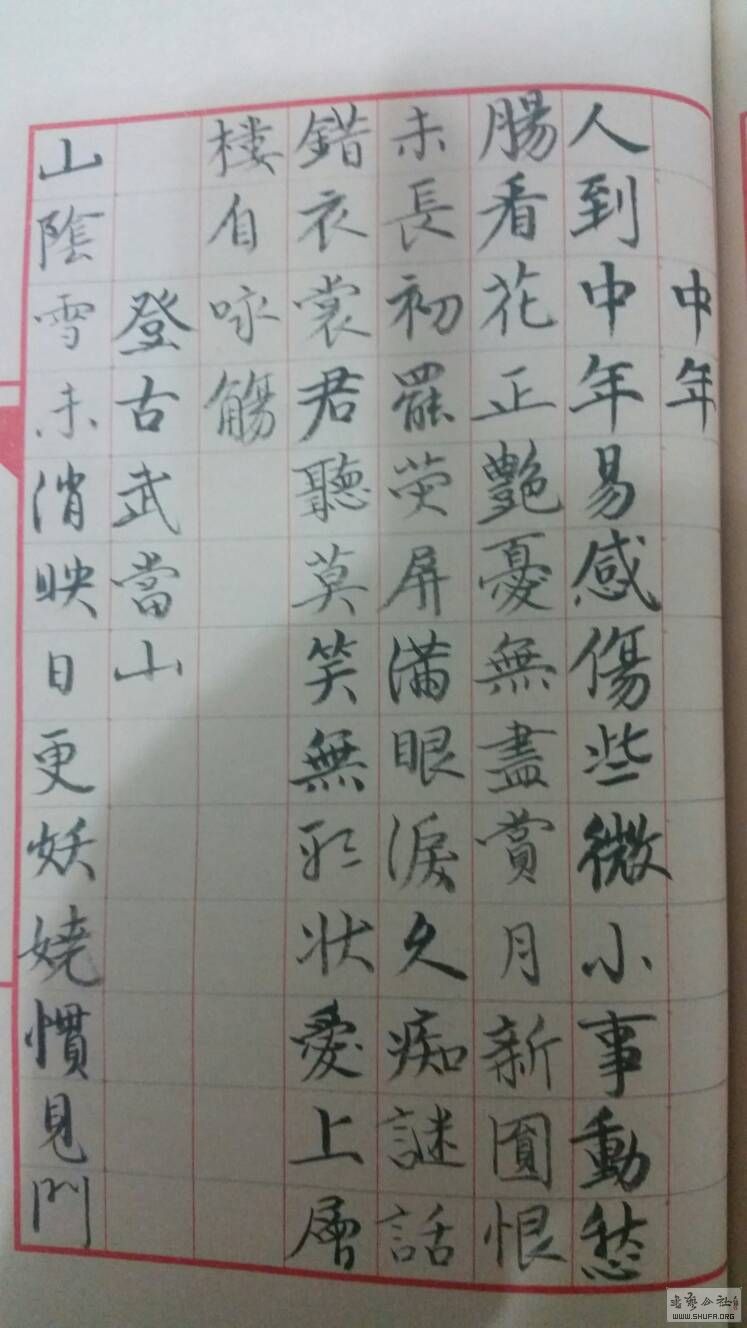 中年
人到中年易感傷些微小事動愁
腸看花正艷憂無盡賞月新圓恨
未長初罷荧屏滿眼淚久痴謎話
錯衣裳君聽莫笑無形状愛上層
楼自咏觞
登古武當山
山陰雪未消映日更妖娆慣見門
WWW.SHUFA.ORG